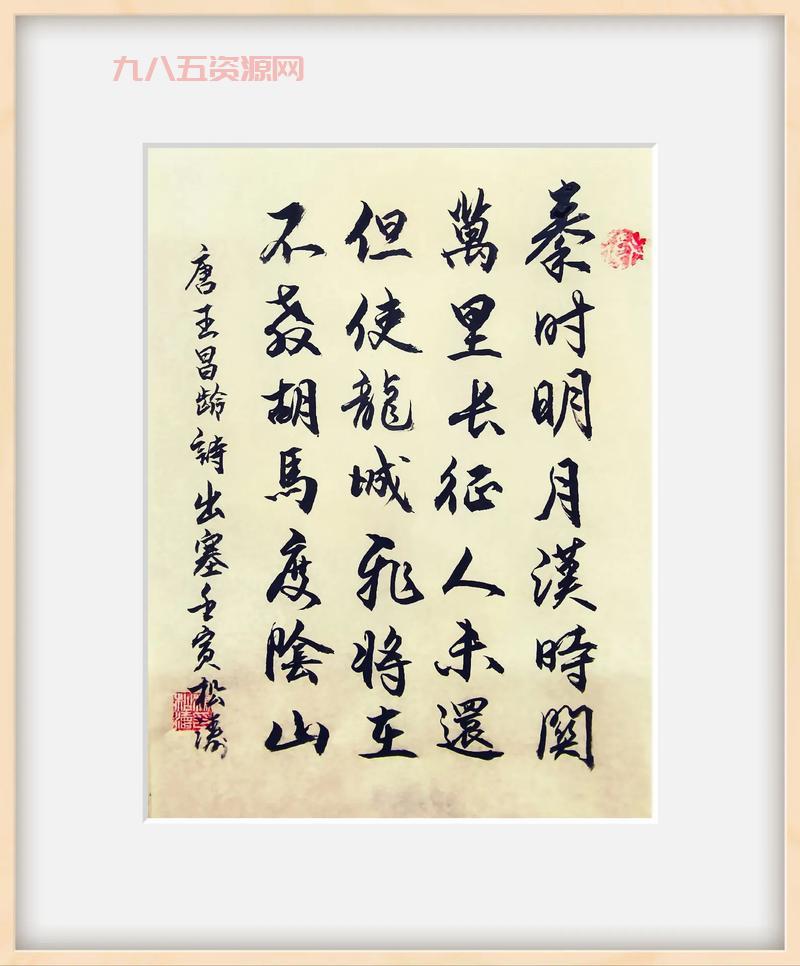 九八五资源网
秦时明月漢時関
萬里长征人未還
但使龍城飛将在
不教胡馬度陰山
唐王昌龄詩出塞壬寅松濤
松濤